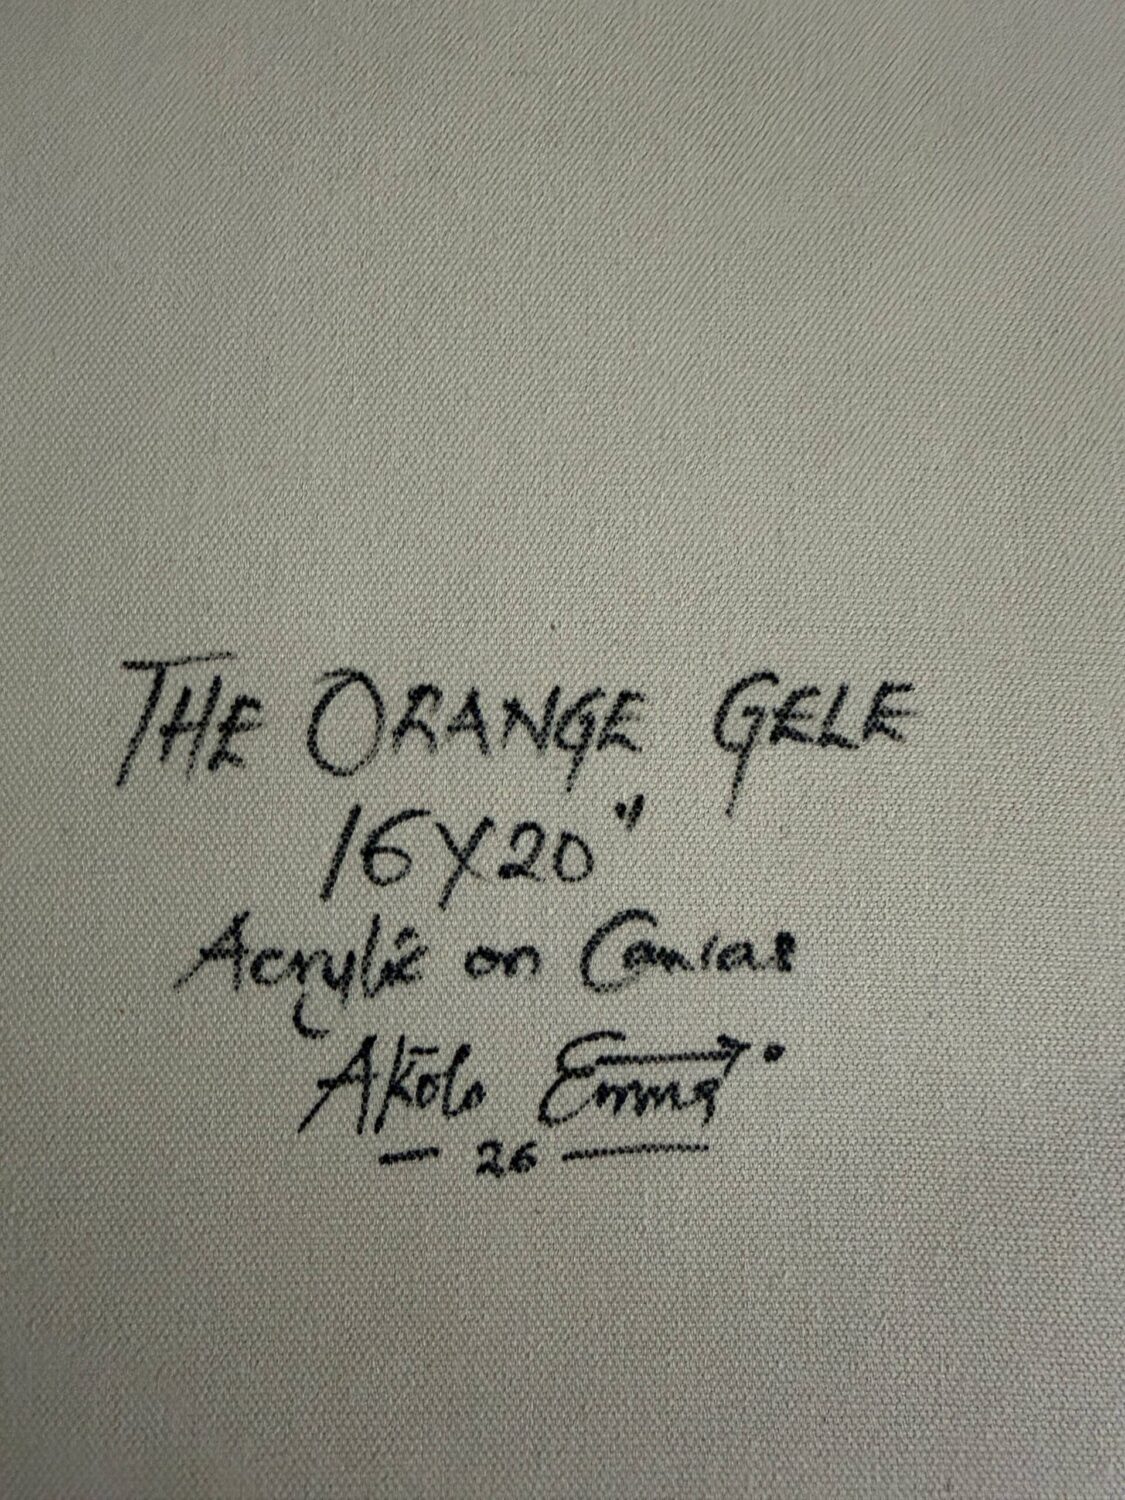 THE ORANGE GELE
16X20"
Acrylic on Canvas
Akolo Emma
26